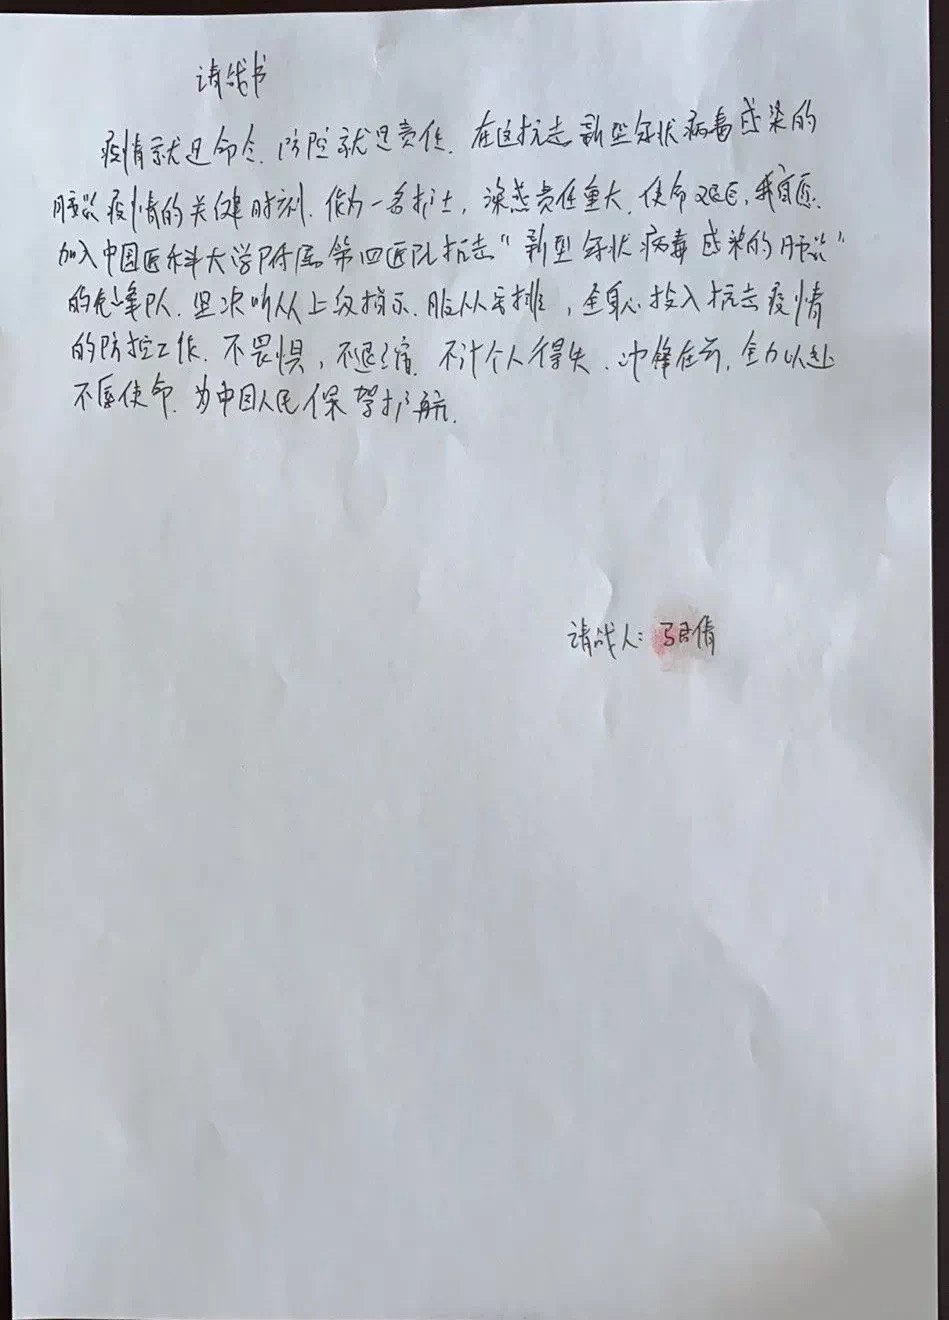 请战书
疫情就是命令.防控就是责任.在这抗击新型冠状病毒感染的
肺炎疫情的关键时刻.作为一名护士,深感责任重大.使命艰巨,我自愿.
加入中国医科大学附属第四医院抗击"新型冠状病毒感染的肺炎"
的先锋队.坚决听从上级指示.服从安排,全身心投入抗击疫情
的防控工作.不畏惧,不退缩.不计个人得失.冲锋在前,全力以赴
不辱使命.为中国人民保驾护航.
请战人:马君倩